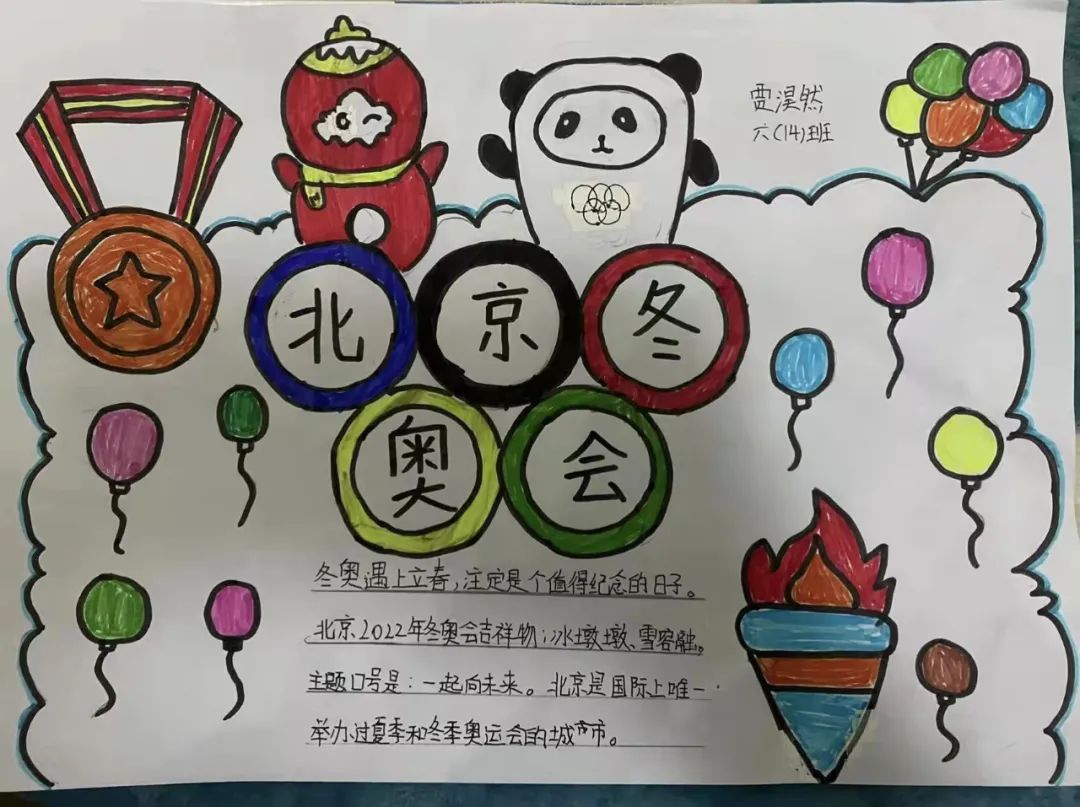 贾淏然
六(14)班
北京冬
奥会
冬奥遇上立春,注定是个值得纪念的日子。
北京2022年冬奥会吉祥物:冰墩墩、雪容融。
主题口号是:一起向未来。北京是国际上唯一
举办过夏季和冬季奥运会的城市。